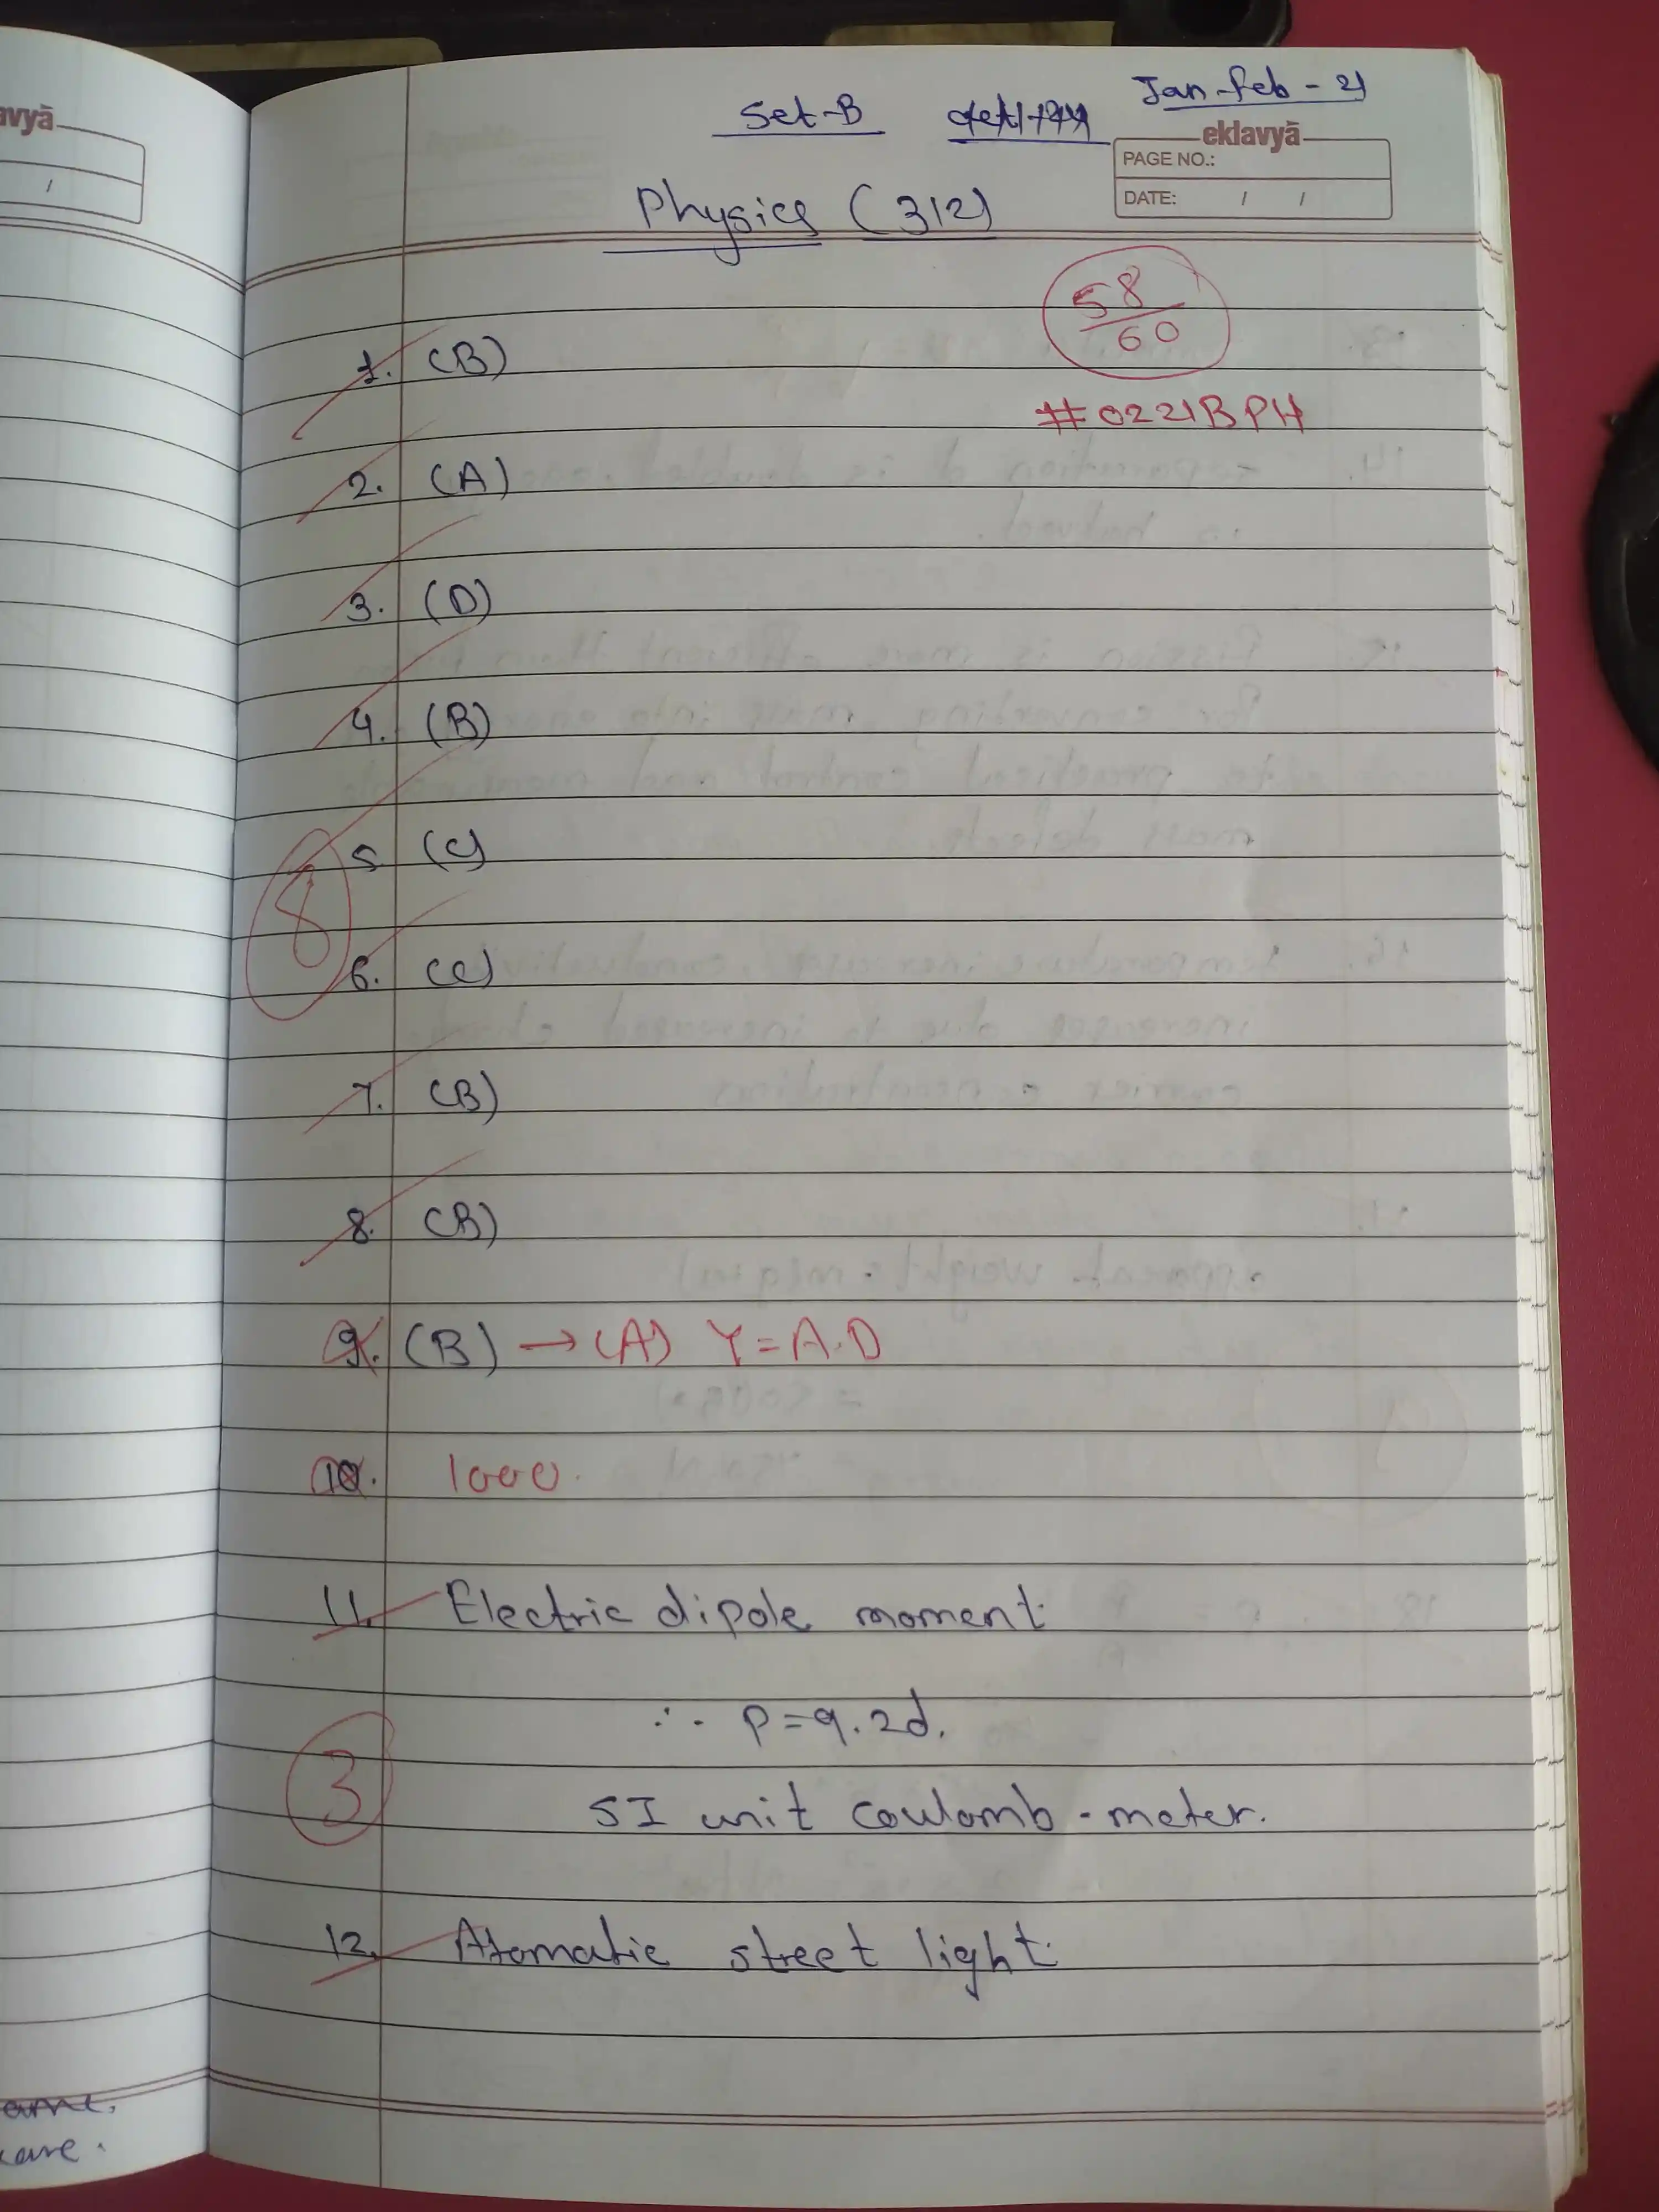 avyā
/
Set-B Jan-Feb-21
eklavyā
PAGE NO.:
DATE: / /
Physics (312)
58
60
#0221BPH
1. (B)
2. (A)
3. (D)
4. (B)
5. (C)
8
6. (C)
7. (B)
8. (B)
9. (B) → (A) Y = A.D
10. 1000.
11. Electric dipole moment.
∴ P = q.2d.
3
SI unit coulomb-meter.
12. Atomatic street light.
care.